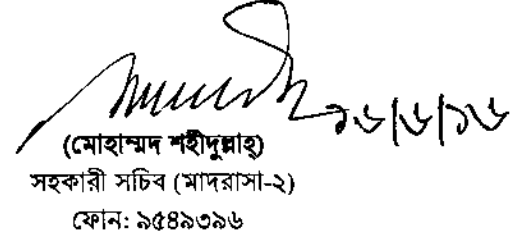 ১৬/৬/১৬
(মোহাম্মদ শহীদুল্লাহ্)
সহকারী সচিব (মাদরাসা-২)
ফোন: ৯৫৪৯৩৯৬